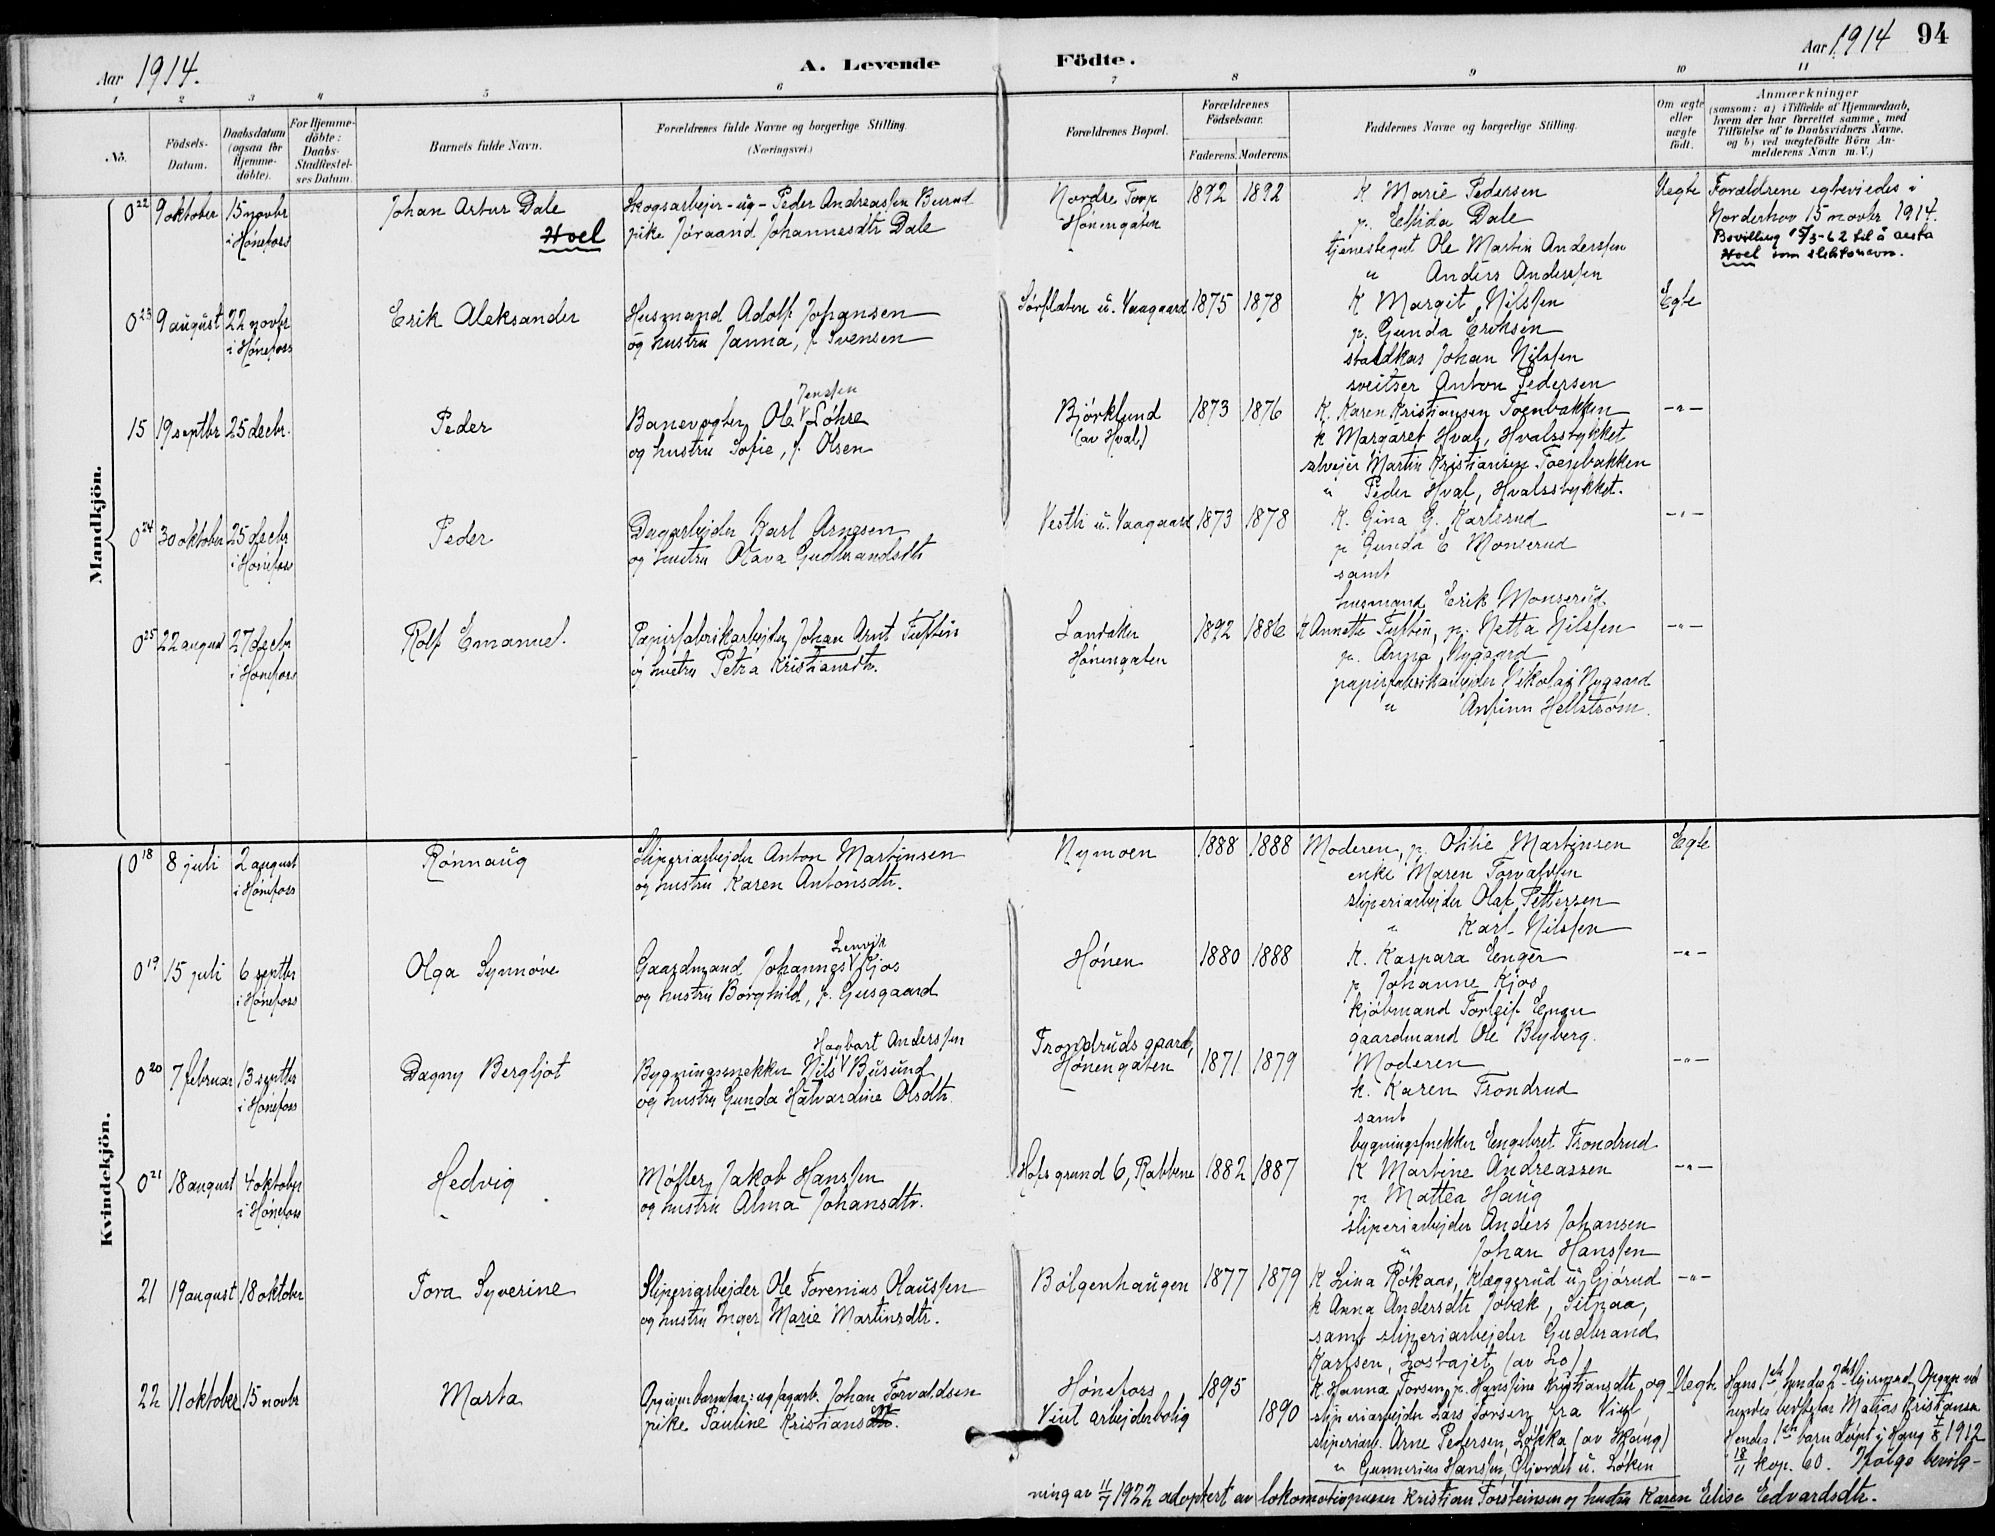 Aar 1914.
A. Levende Födte.
Aar 1914 94
1 2 3 4 5 6 7 8 9 10 11
No.
Födsels-Datum.
Daabsdatum (ogsaa for Hjemme-döbte).
For Hjemme-döbte: Daabs-Stadfæstel-ses Datum.
Barnets fulde Navn.
Forældrenes fulde Navne og borgerlige Stilling.
(Næringsvei.)
Forældrenes Bopæl.
Forældrenes Födselsaar.
Faderens. Moderens.
Faddernes Navne og borgerlige Stilling.
Om ægte eller uægte födt.
Anmærkninger
(saasom: a) i Tilfælde af Hjemmedaab, hvem der har forrettet samme, med Tilföielse af to Daabsvidners Navne, og b) ved uægtefödte Börn An-melderens Navn m. V.)
Mandkjön.
0 22 9 oktober 15 novbr i Hönefoss
Johan Artur Dale
Hoel
Skogsarbejer - ug - Peder Andreassen Burud
pike Jöraand Johannesdtr Dale
Nordre Torp
Hönengaten
1892 1892
K Marie Pedersen
p. Elfida Dale
tjenestegut Ole Martin Anderssen
" Anders Anderssen
Uegte
Forældrene egteviedes i
Norderhov 15 novbr 1914.
Bevilling 15/3-62 til å
Hoel som slektsnavn.
0 23 9 august 22 novbr i Hönefoss
Erik Aleksander
Husmand Adolf Johansen
og hustru Janna, f Svensen
Sörflaten u. Vaagaard
1875 1878
K Margit Nilssen
p. Gunda Eriksen
staldkar Johan Nilssen
sveitser Anton Pedersen
Egte
15 19 septbr 25 decbr.
Peder
Jenssen
Banevogter Ole V Löhre
og hustru Sofie, f. Olsen
Björklund
(av Hval)
1873 1876
K. Karen Kristiansen Toenbakken
k Margaret Hval, Hvalsstykket
selvejer Martin Kristiansen Toenbakken
" Peder Hval, Hvalsstykket.
-"-
0 24 30 oktober 25 decbr i Hönefoss
Peder
Dagarbejder Karl Arnesen
og hustru Olava Gudbrandsdtr
Vestli u. Vaagaard
1873 1878
K. Gina G. Karlsrud
p Gunda E Monserud
samt
husmand Erik Monserud
-"-
0 25 22 august 27 decbr i Hönefoss
Rolf Emanuel.
Papirfabrikarbejder Johan Arnt Tuftin
og hustru Petra Kristiansdtr.
Landaker
Hönengaten
1892 1886
K Annette Tuftin, p. Netta Nilssen
p. Anna Nygaard
papirfabrikarbejder Nikolai Nygaard
" Anfinn Hellström.
-"-
Kvindekjön.
0 18 8 juli 2 august i Hönefoss
Rönnaug
Sliperiarbejder Anton Martinsen
og hustru Karen Antonsdtr.
Nymoen
1888 1888
Moderen, p. Otilie Martinsen
enke Maren Torvaldsen
sliperiarbejder Olaf Pettersen
" Karl Nilssen
Egte
0 19 15 juli 6 septbr i Hönefoss
Olga Synnöve
Lenvik
Gaardmand Johannes V Kjos
og hustru Borghild, f. Gusgaard
Hönen
1880 1888
K. Kaspara Enger
p Johanne Kjos
kjöbmand Torleif Enger
gaardmand Ole Blyberg.
-"-
0 20 7 februar 13 septbr i Hönefoss
Dagny Bergljot
Hagbart Anderssen
Bygningssnekker Nils V Busund
og hustru Gunda Halvardine Olsdtr.
Trondruds gaard,
Hönengaten
1871 1879
Moderen
k. Karen Trondrud
samt
bygningssnekker Engebret Trondrud
-"-
0 21 18 august 4 oktober i Hönefoss
Hedvig
Möller Jakob Hanssen
og hustru Alma Johansdtr.
Hofsgrund 6, Rabbene
1882 1887
K Martine Andreassen
p Mattea Haug
sliperiarbejder Anders Johansen
" Johan Hanssen
-"-
21 19 august 18 oktober
Tora Syverine
Sliperiarbejder Ole Torenius Olaussen
og hustru Inger Marie Martinsdtr.
Bölgenhaugen
1877 1879
K Lina Rökaas, Klæggerud u. Gjörud
k Anna Andersdtr Jobæk, Sitpaa,
samt sliperiarbejder Gudbrand
Karlsen, Lostajet (av Lo)
-"-
22 11 oktober 15 novbr
Marta
Opgiven barnefar: ug fagarb. Johan Torvaldsen
pike Pauline Kristiansdtr.
Hönefoss
Viul arbejderbolig
1895
1890
K. Hanna Torsen, p. Hansine Kristiansdtr, og
sliperiarbejder Lars Torsen fra Viul
sliperiarb. Arne Pedersen, Lökka (av Haug)
" Gunnerius Hanssen, Gjordet u. Löken
Uegte
Hans 1ste, hendes 2det leiermaal. Opgave ved
hendes bedstefar Matias Kristiansen
Hendes 1ste barn döpt i Haug 1912
18/11 kop. 60. Ifölge bevilg-
ning av 11/7 1922 adoptert av lokomotivpusser Kristian Torsteinsen og hustru Karen Elise Edvardsdtr.